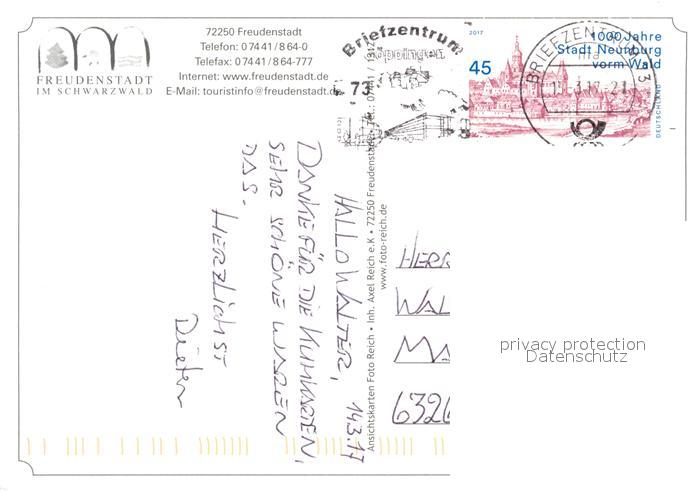 FREUDENSTADT
IM SCHWARZWALD
72250 Freudenstadt
Telefon: 0 74 41 / 8 64-0
Telefax: 0 74 41 / 8 64-777
Internet: www.freudenstadt.de
E-Mail: touristinfo@freudenstadt.d
Briefzentrum
73
BRIEFZENTRUM 73
2017
45
1000 Jahre
Stadt Neunburg
vorm Wald
DEUTSCHLAND
14.3.17
HALLO WALTER,
DANKE FÜR DIE KUHKARTEN,
SEHR SCHÖNE WAREN
DAS.
HERZLICHST
Dieter
Ansichtskarten Foto Reich • Inh. Axel Reich e.K • 72250 Freudenstadt • Tel.: 07441 /
www.foto-reich.de
HERR
WAL
MA
6326
privacy protection
Datenschutz